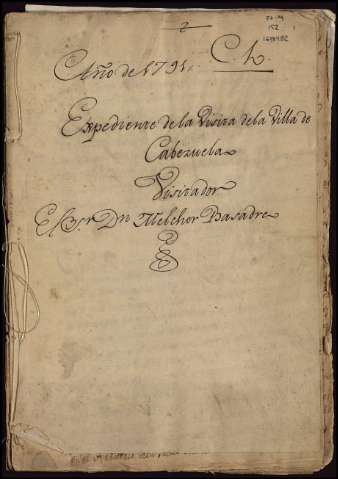 2
152
Año de 1791. C. h.
Expediente de la Visita de la Villa de
Cabezuela
Visitador
El S.r Dn Melchor Basadre